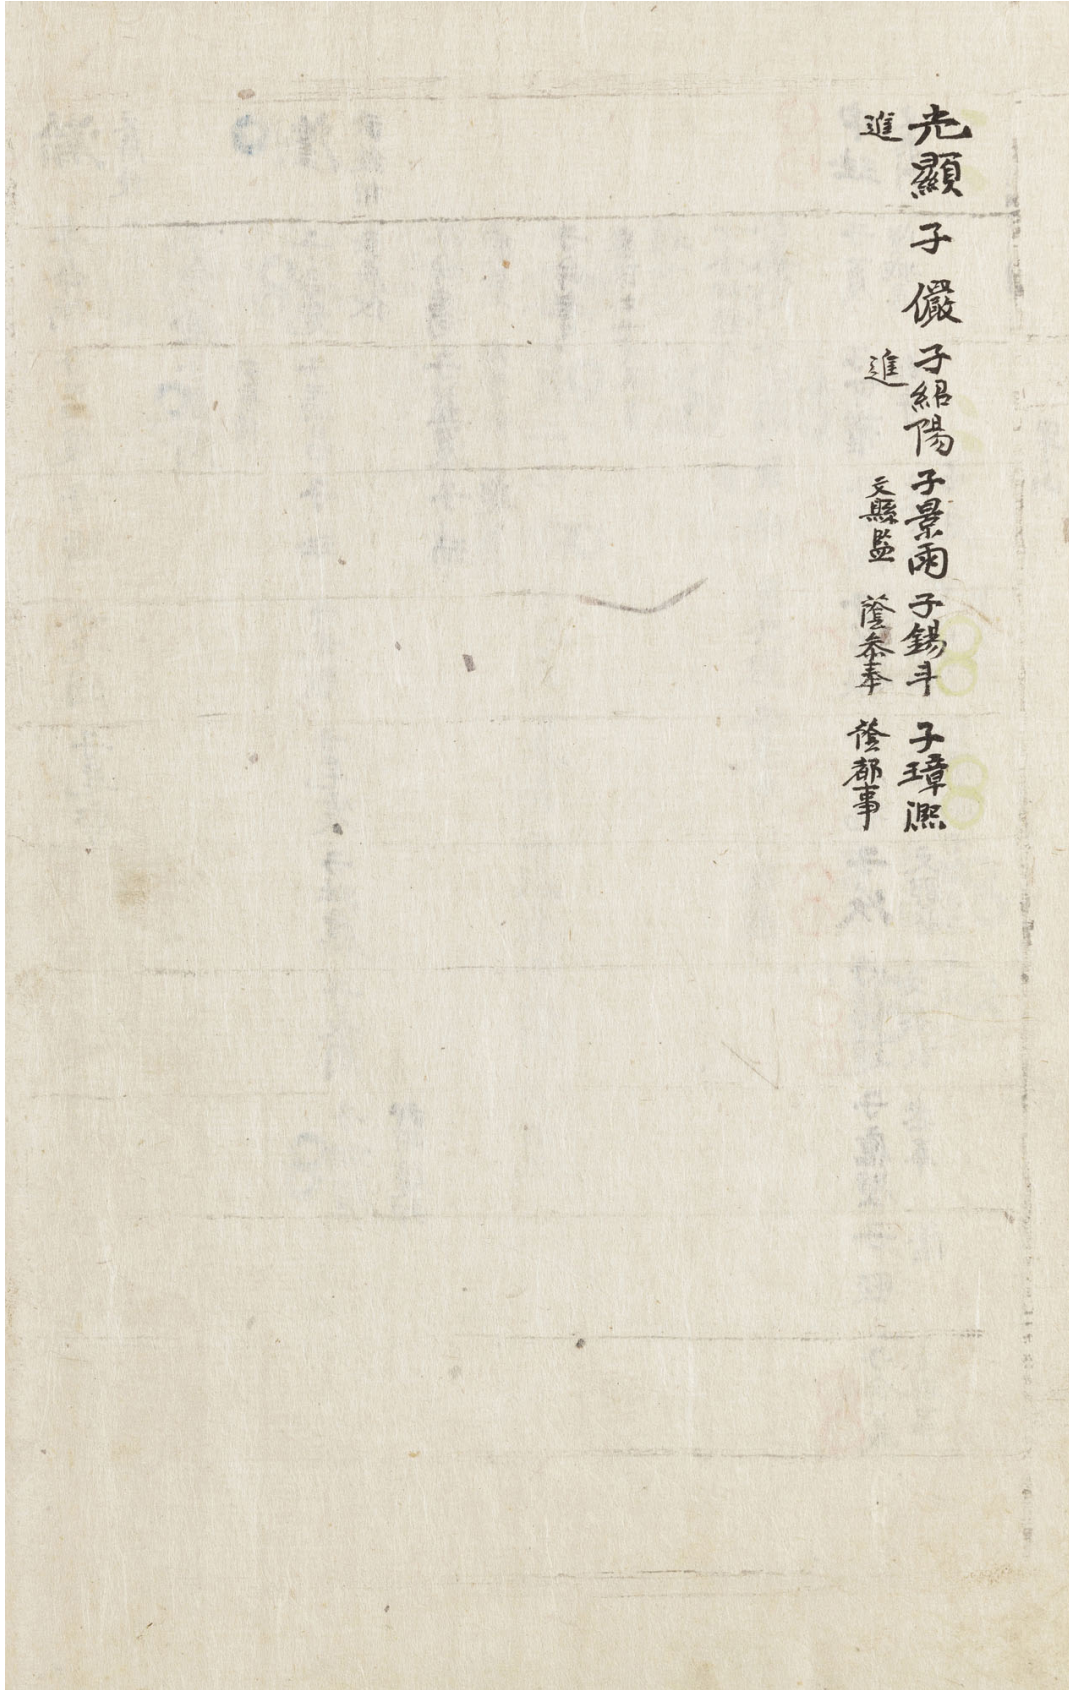 光顯子儼子紹陽子景雨子錫斗子璋凞
進
進
文縣監
蔭參奉
蔭都事